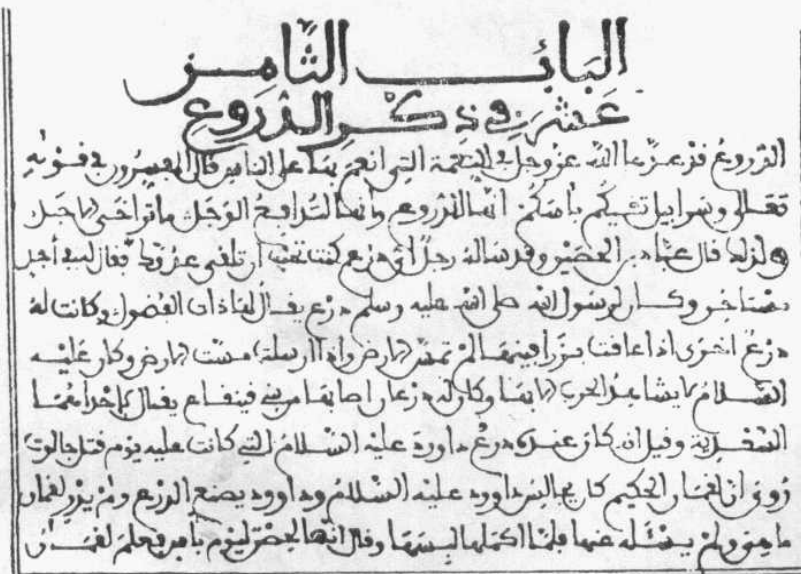 البَابُ الثَّامِن
عَشَر في ذكر الدُّرُوع
الدُّرُوعُ قد عدّها اللّه عزّ وجل في النِّعمة التي انعم بها على الناس قال المفسرون في قوله
تعـالى وسرابيل تقيكم بأسكم انها الدُّرُوع
قال عبّاد بن الحصَيْن وقد ساله رجلٌ ايّ درْع كنت تحبّ ان تلقى عدُوّك فقال في أجل
مستاخر وكـان لرسول الله صلى الله عليه وسلم درْع يقـال لها ذات الفُضول وكانت له
درْعٌ اخرَى اذا عـلقت بزرافينهـا لمْ تمسّ الارض واذا ارسلت مسّت الارض وكان عَليْـه
السّلامُ لا يشاهدُ الحربَ الا بهـا وكان له درْعان اصابهـا من بني قينقـاع يقـال لإحداهُمـا
السّغْديّة وقيل ان كان عندهُ درْعُ داوودَ عليْه السّلامُ التي كانت عليه يوْم قتل جالوت
رُويَ انّ لقمـان الحكيم كان يجالِس داوودَ عليْه السّلامُ وداوود يصْنع الدرْع ولمْ يدْر لقمان
ما هيَ ولمْ يسْئله عنها فلمّا اكملها لبسَهـا وقال انّهـا لحصْن ليوْم بأس فعلم لقمـان